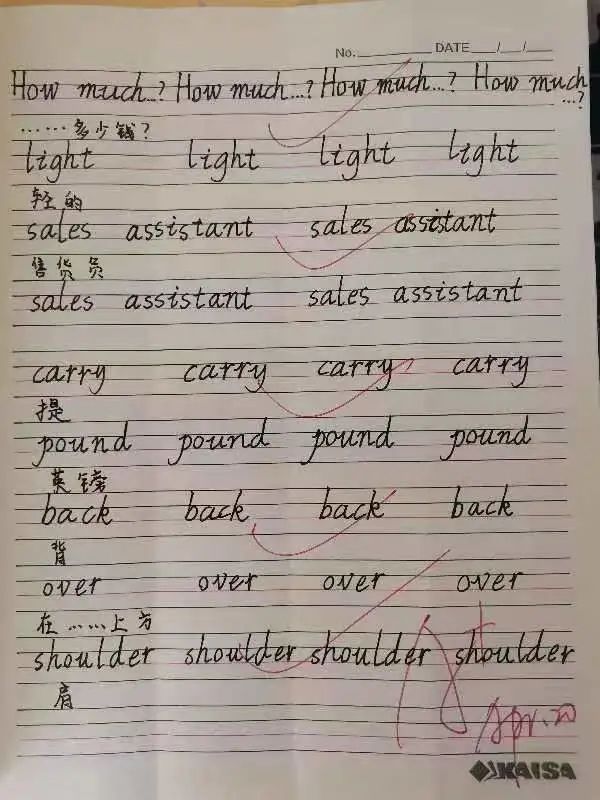 No. DATE / /
How much...? How much...? How much...? How much...?
……多少钱?
light light light light
轻的
sales assistant sales assistant
售货员
sales assistant sales assistant
carry carry carry carry
提
pound pound pound pound
英镑
back back back back
背
over over over over
在……上方
shoulder shoulder shoulder shoulder
肩
Apr. 20
KAISA